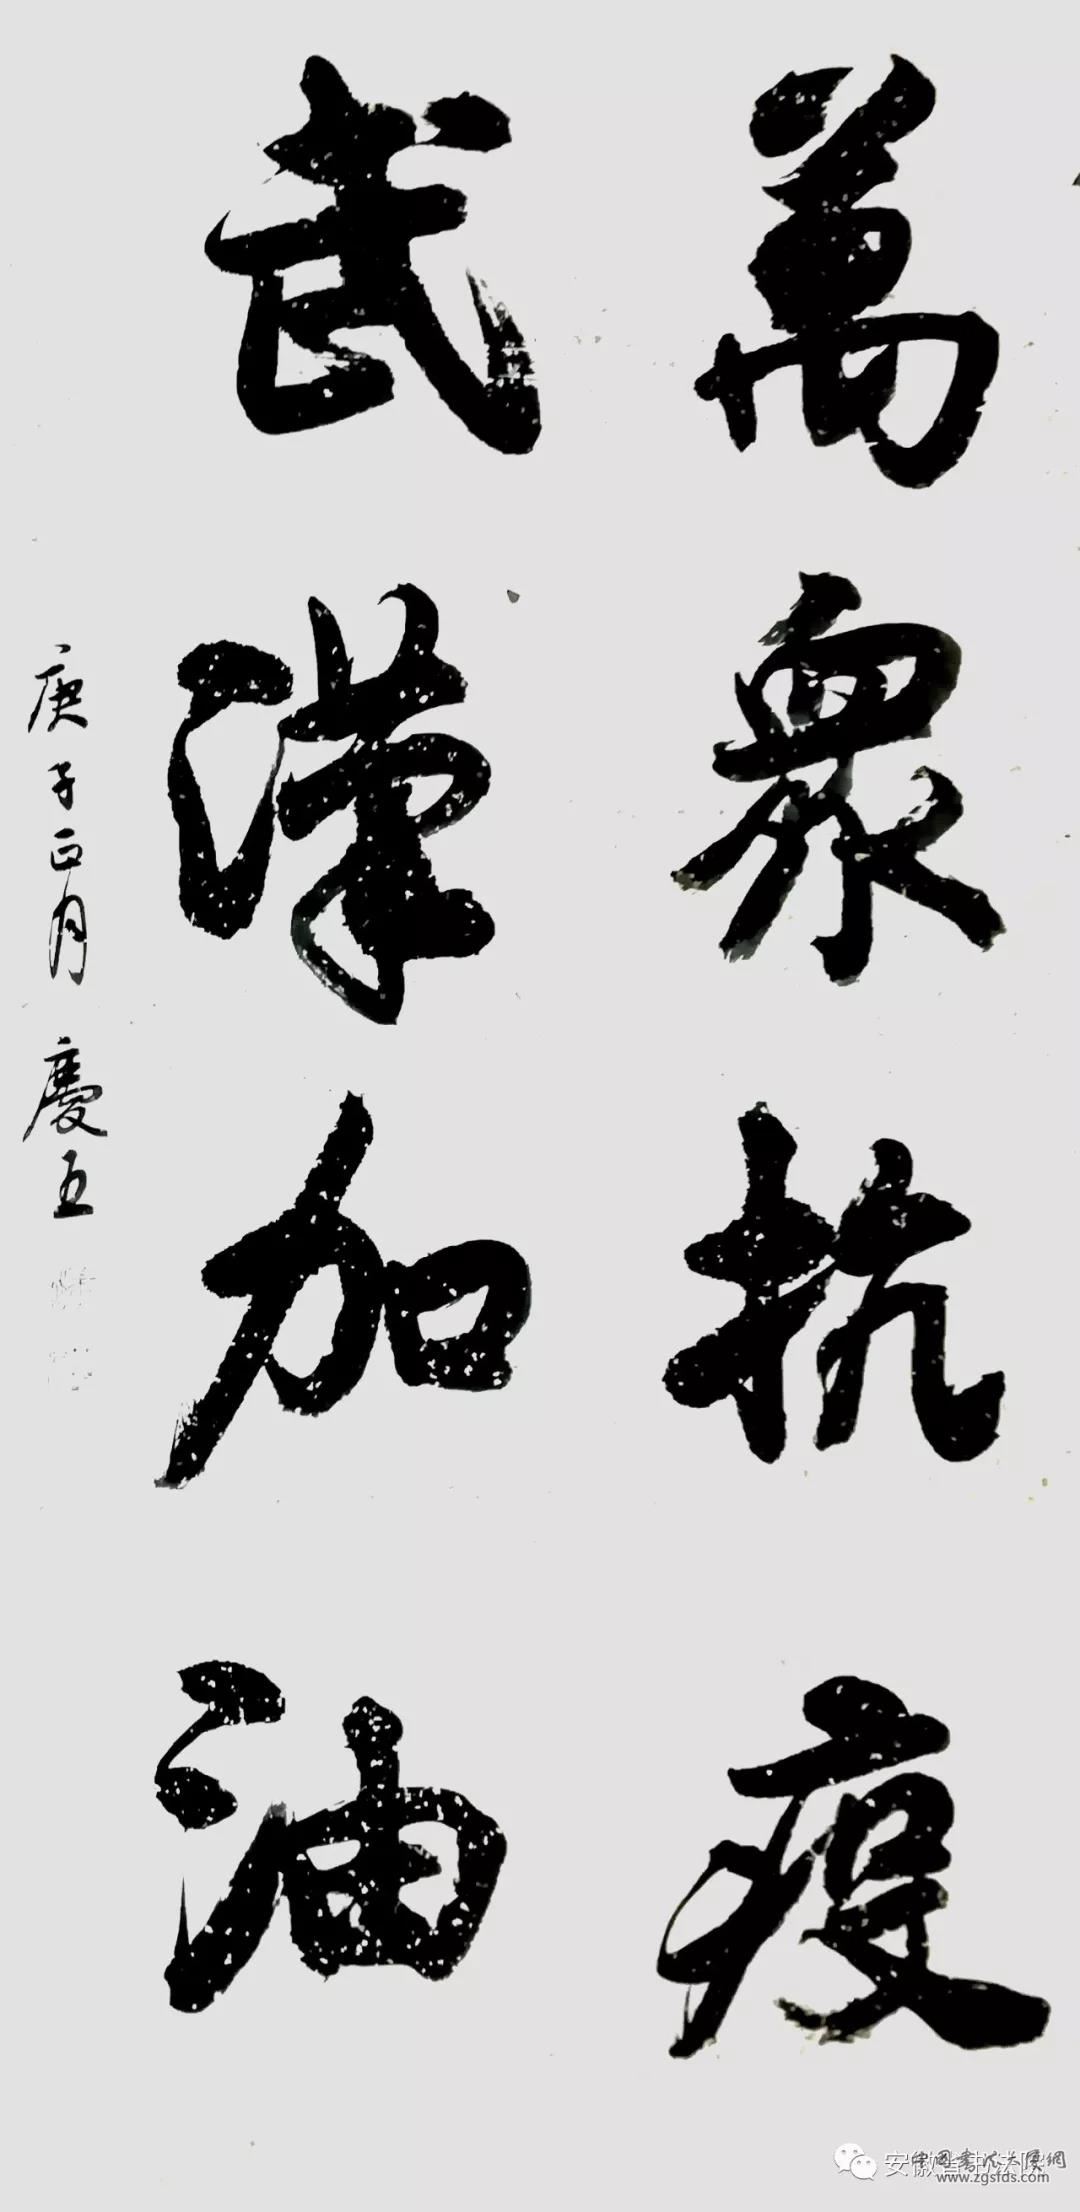 萬衆抗疫
武漢加油
庚子正月 慶五
中国書法大展網
www.zgsfds.com